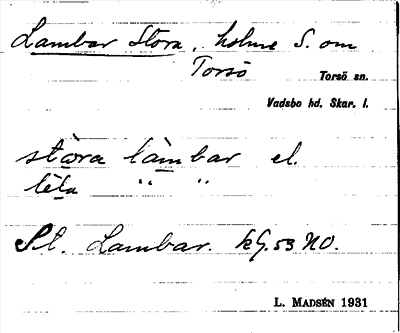 Lambar Stora, holme S. om
Torsö
Torsö sn.
Vadsbo hd. Skar. l.
stora làmbar el.
lela " "
Pl. Lambar. kG. 53 NO.
L. MADSÉN 1931